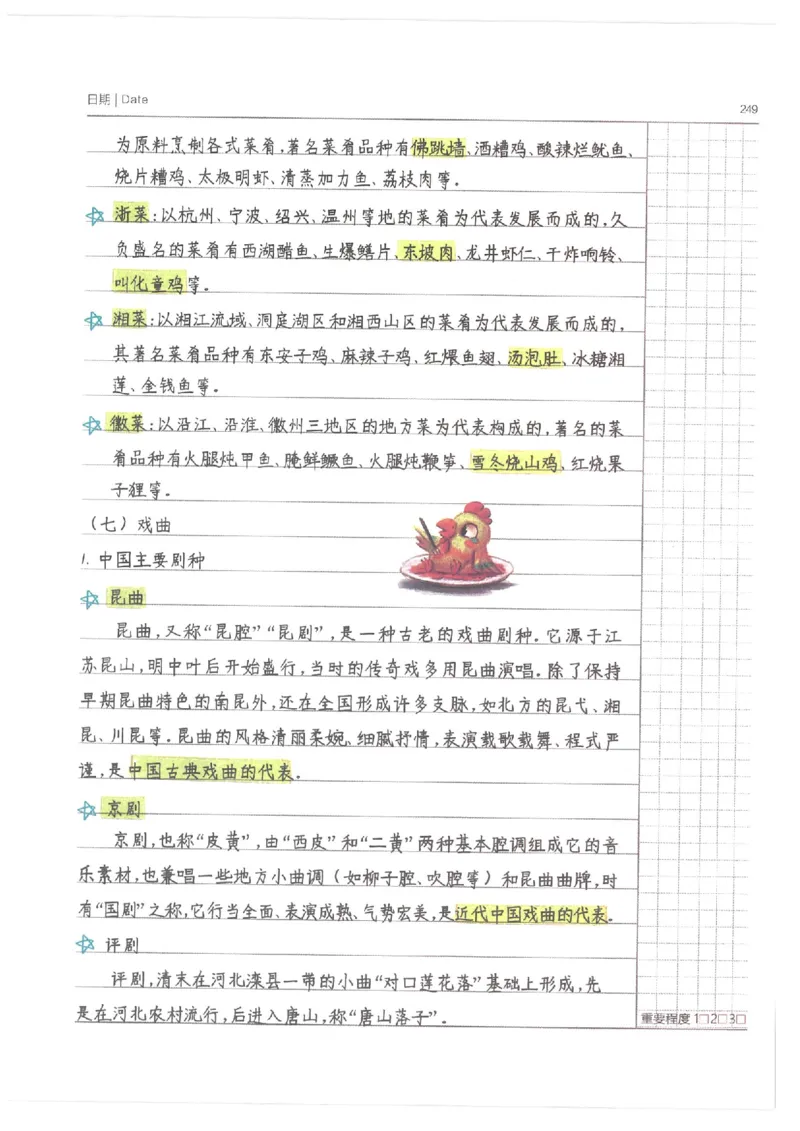 日期 | Date
249
为原料烹制各式菜肴,著名菜肴品种有佛跳墙、酒糟鸡、酸辣烂鱿鱼、
烧片糟鸡、太极明虾、清蒸加力鱼、荔枝肉等。
浙菜:以杭州、宁波、绍兴、温州等地的菜肴为代表发展而成的,久
负盛名的菜肴有西湖醋鱼、生爆鳝片、东坡肉、龙井虾仁、干炸响铃、
叫化童鸡等。
湘菜:以湘江流域、洞庭湖区和湘西山区的菜肴为代表发展而成的,
其著名菜肴品种有东安子鸡、麻辣子鸡、红煨鱼翅、汤泡肚、冰糖湘
莲、金钱鱼等。
徽菜:以沿江、沿淮、徽州三地区的地方菜为代表构成的,著名的菜
肴品种有火腿炖甲鱼、腌鲜鳜鱼、火腿炖鞭笋、雪冬烧山鸡、红烧果
子狸等。
(七)戏曲
1. 中国主要剧种
昆曲
昆曲,又称“昆腔”“昆剧”,是一种古老的戏曲剧种。它源于江
苏昆山,明中叶后开始盛行,当时的传奇戏多用昆曲演唱。除了保持
早期昆曲特色的南昆外,还在全国形成许多支脉,如北方的昆弋、湘
昆、川昆等。昆曲的风格清丽柔婉、细腻抒情,表演载歌载舞、程式严
谨,是中国古典戏曲的代表。
京剧
京剧,也称“皮黄”,由“西皮”和“二黄”两种基本腔调组成它的音
乐素材,也兼唱一些地方小曲调(如柳子腔、吹腔等)和昆曲曲牌,时
有“国剧”之称,它行当全面、表演成熟、气势宏美,是近代中国戏曲的代表。
评剧
评剧,清末在河北滦县一带的小曲“对口莲花落”基础上形成,先
是在河北农村流行,后进入唐山,称“唐山落子”。
重要程度 1□2□3□